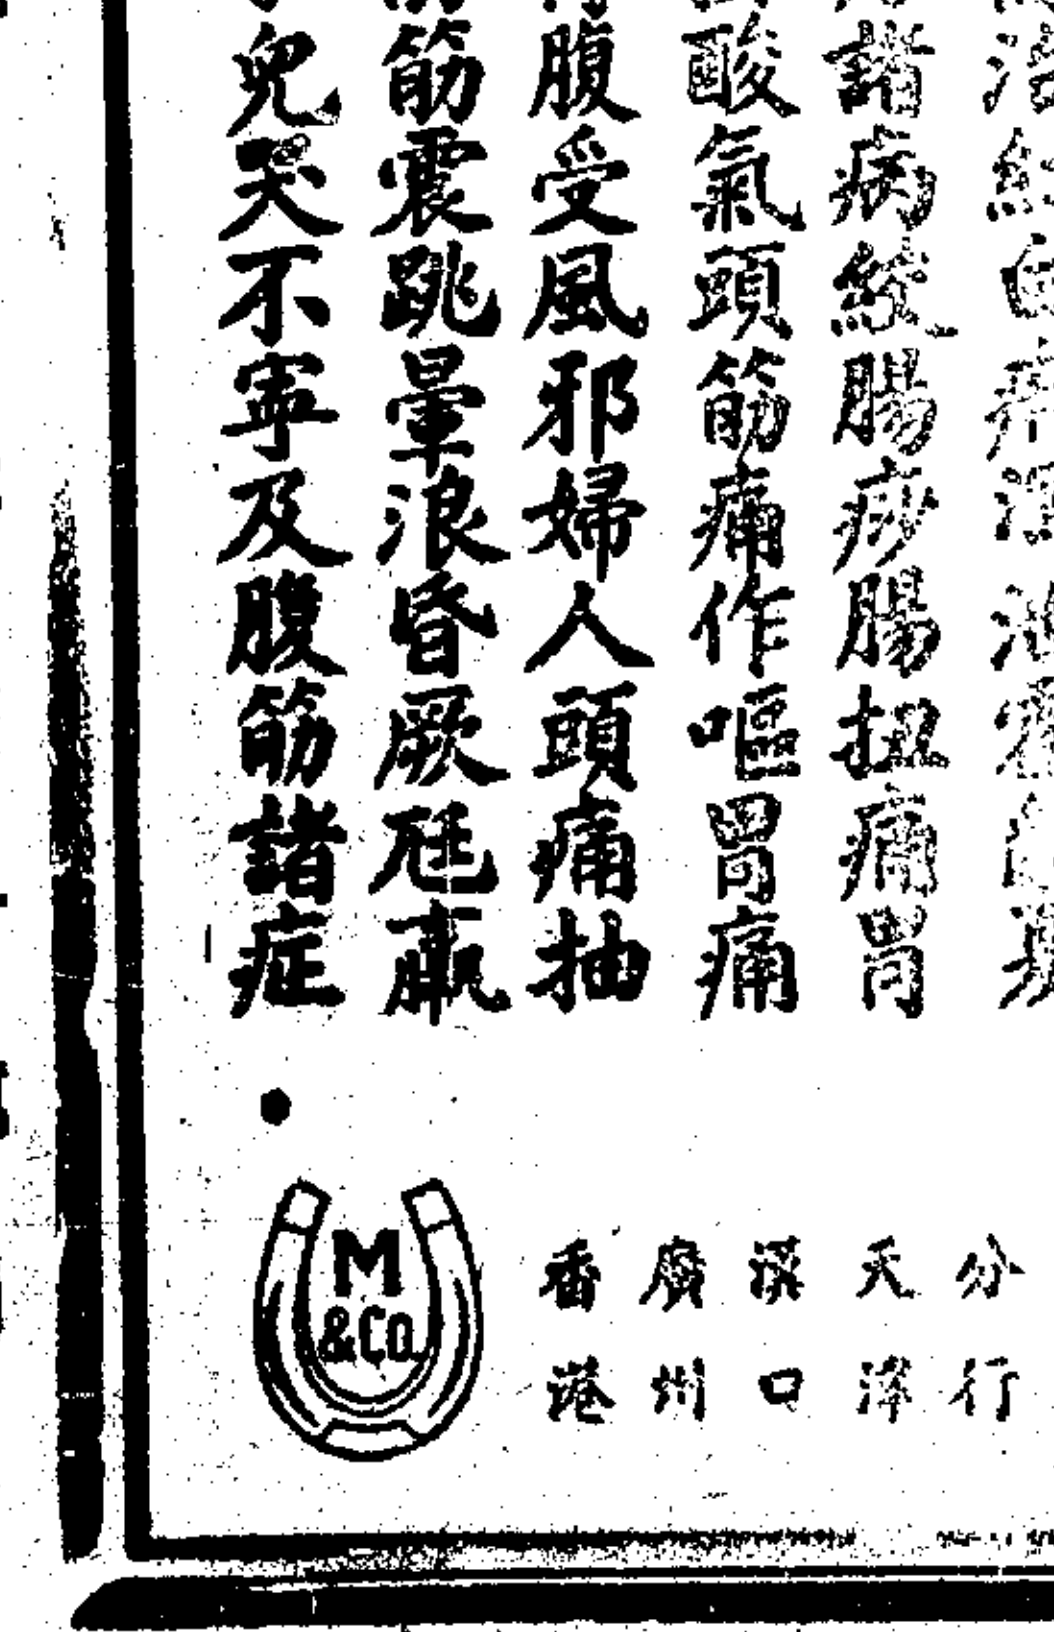 諸病絞腸痧腸扭痛胃
酸氣頭筋痛作嘔胃痛
腹受風邪婦人頭痛抽
筋震跳暈浪昏厥尪羸
兒哭不寧及腹筋諸症
分行
天津
漢口
廣州
香港
M
&Co.